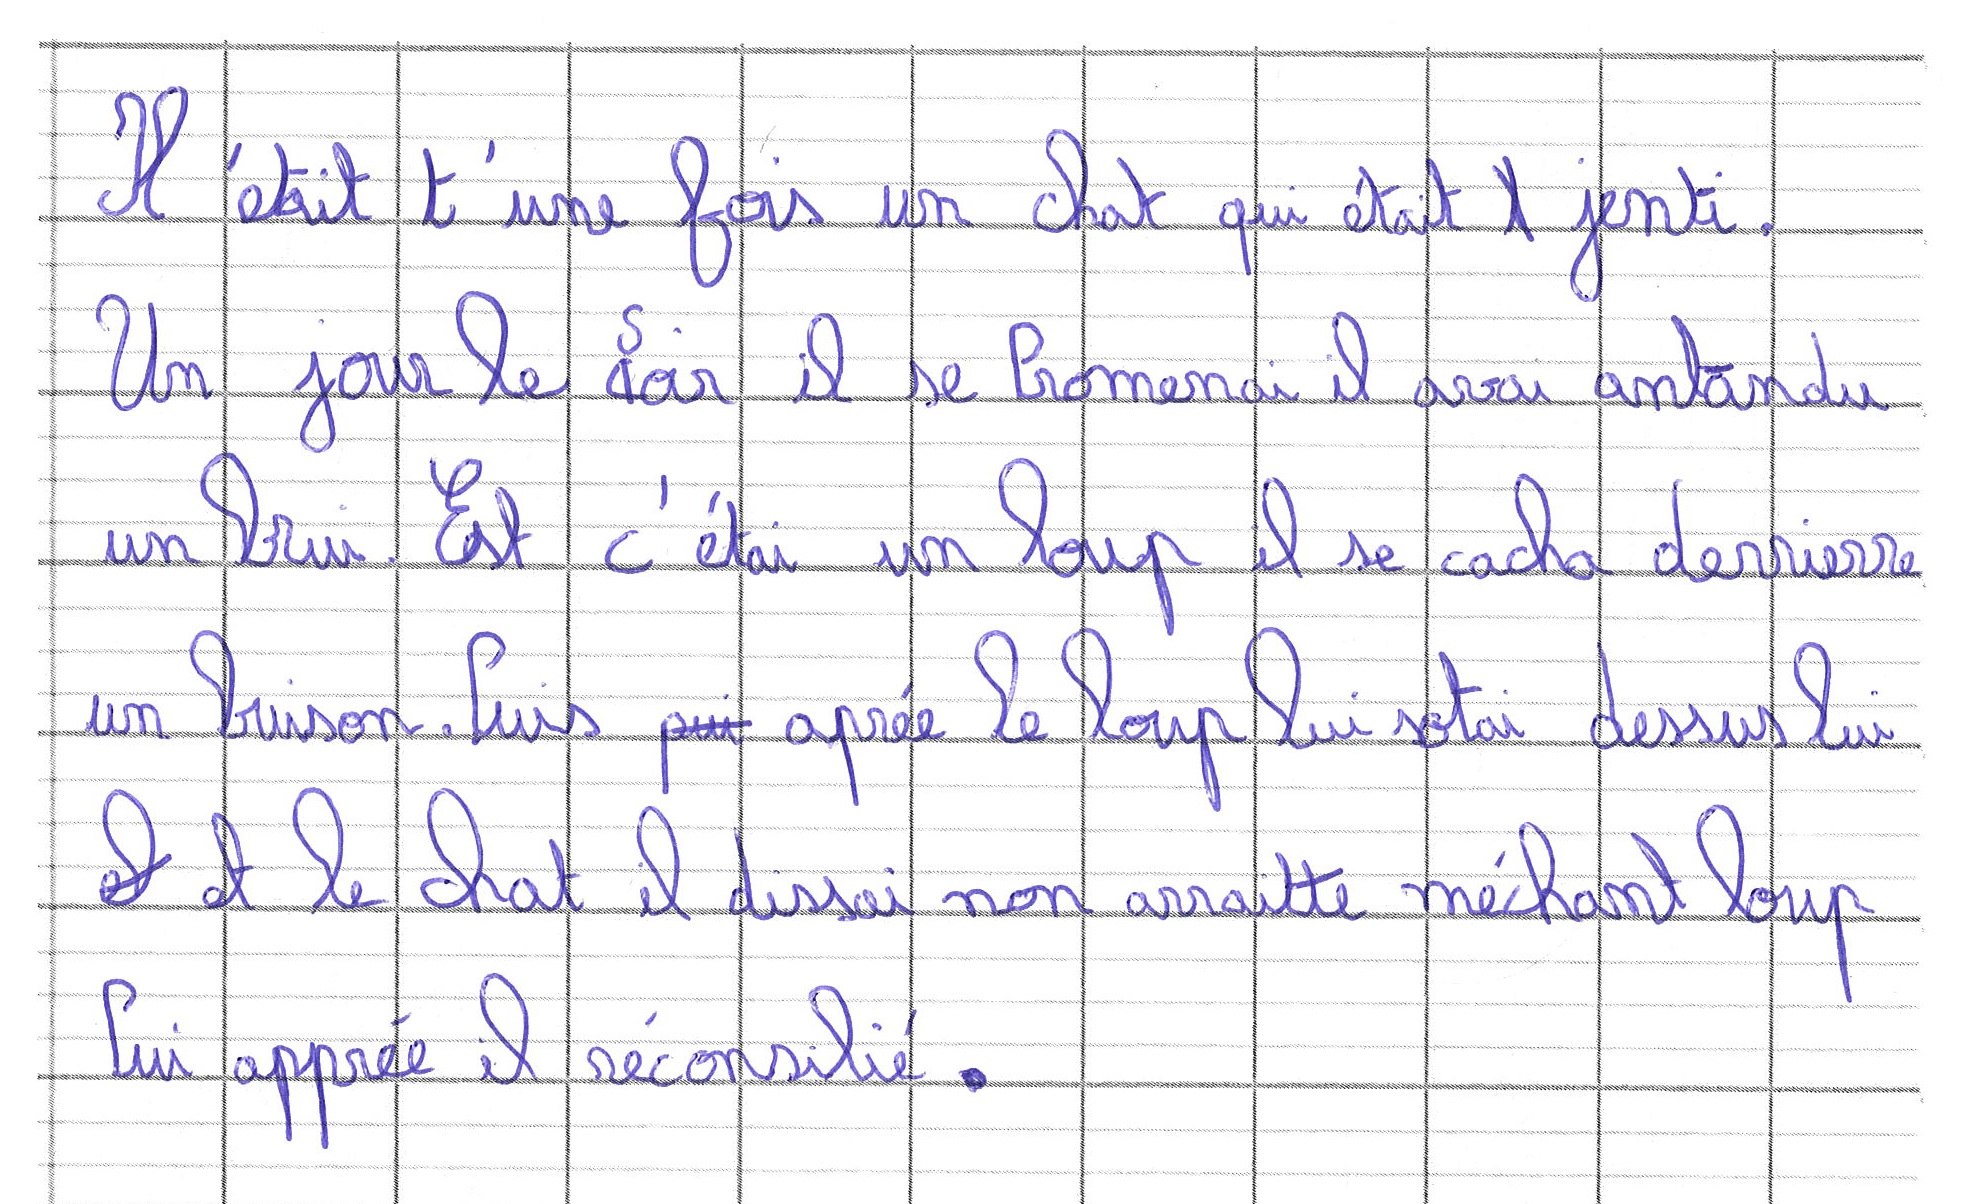 Il était t'une fois un chat qui était jenti.
Un jour le soir il se Promenai il avai antandu
un brui. Est c'étai un loup il se cacha derrierre
un buison. Puis aprée le loup lui sotai dessus lui
et le chat il dissai non arraitte méchant loup
Pui apprée il réconsilié.